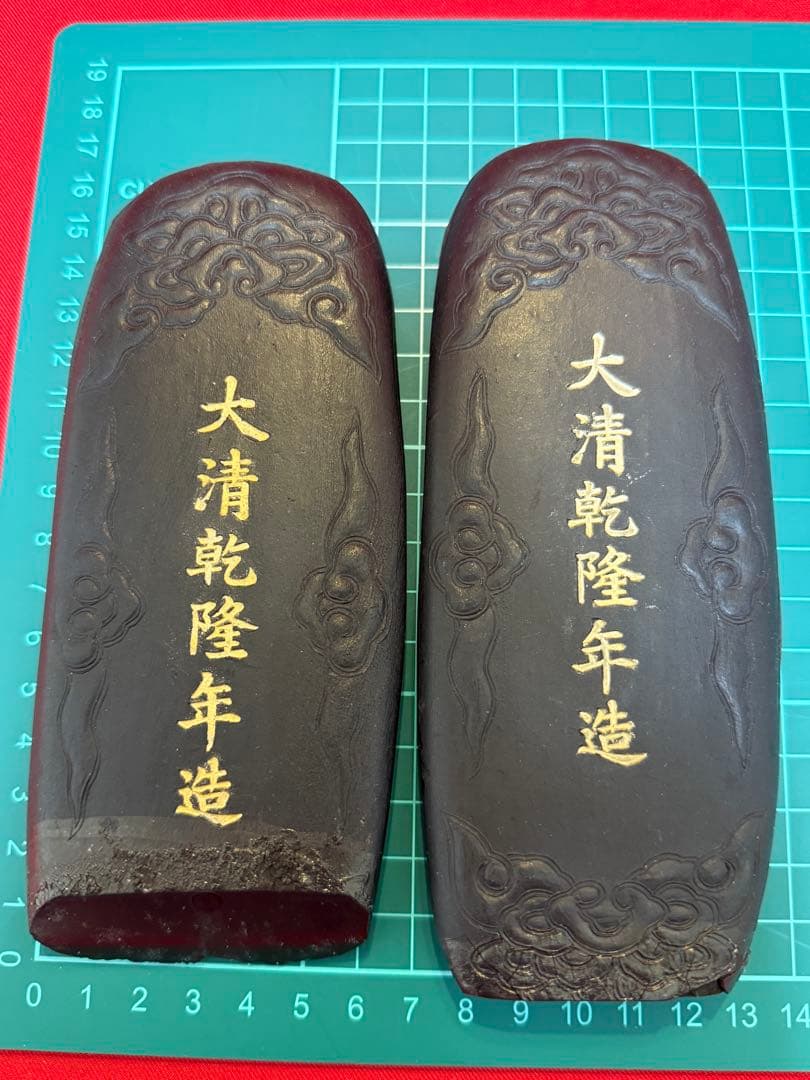 大清乾隆年造
大清乾隆年造
19
18
17
16
15
14
13
12
11
10
9
8
7
6
5
4
3
2
1
0
0 1 2 3 4 5 6 7 8 9 10 11 12 13 14